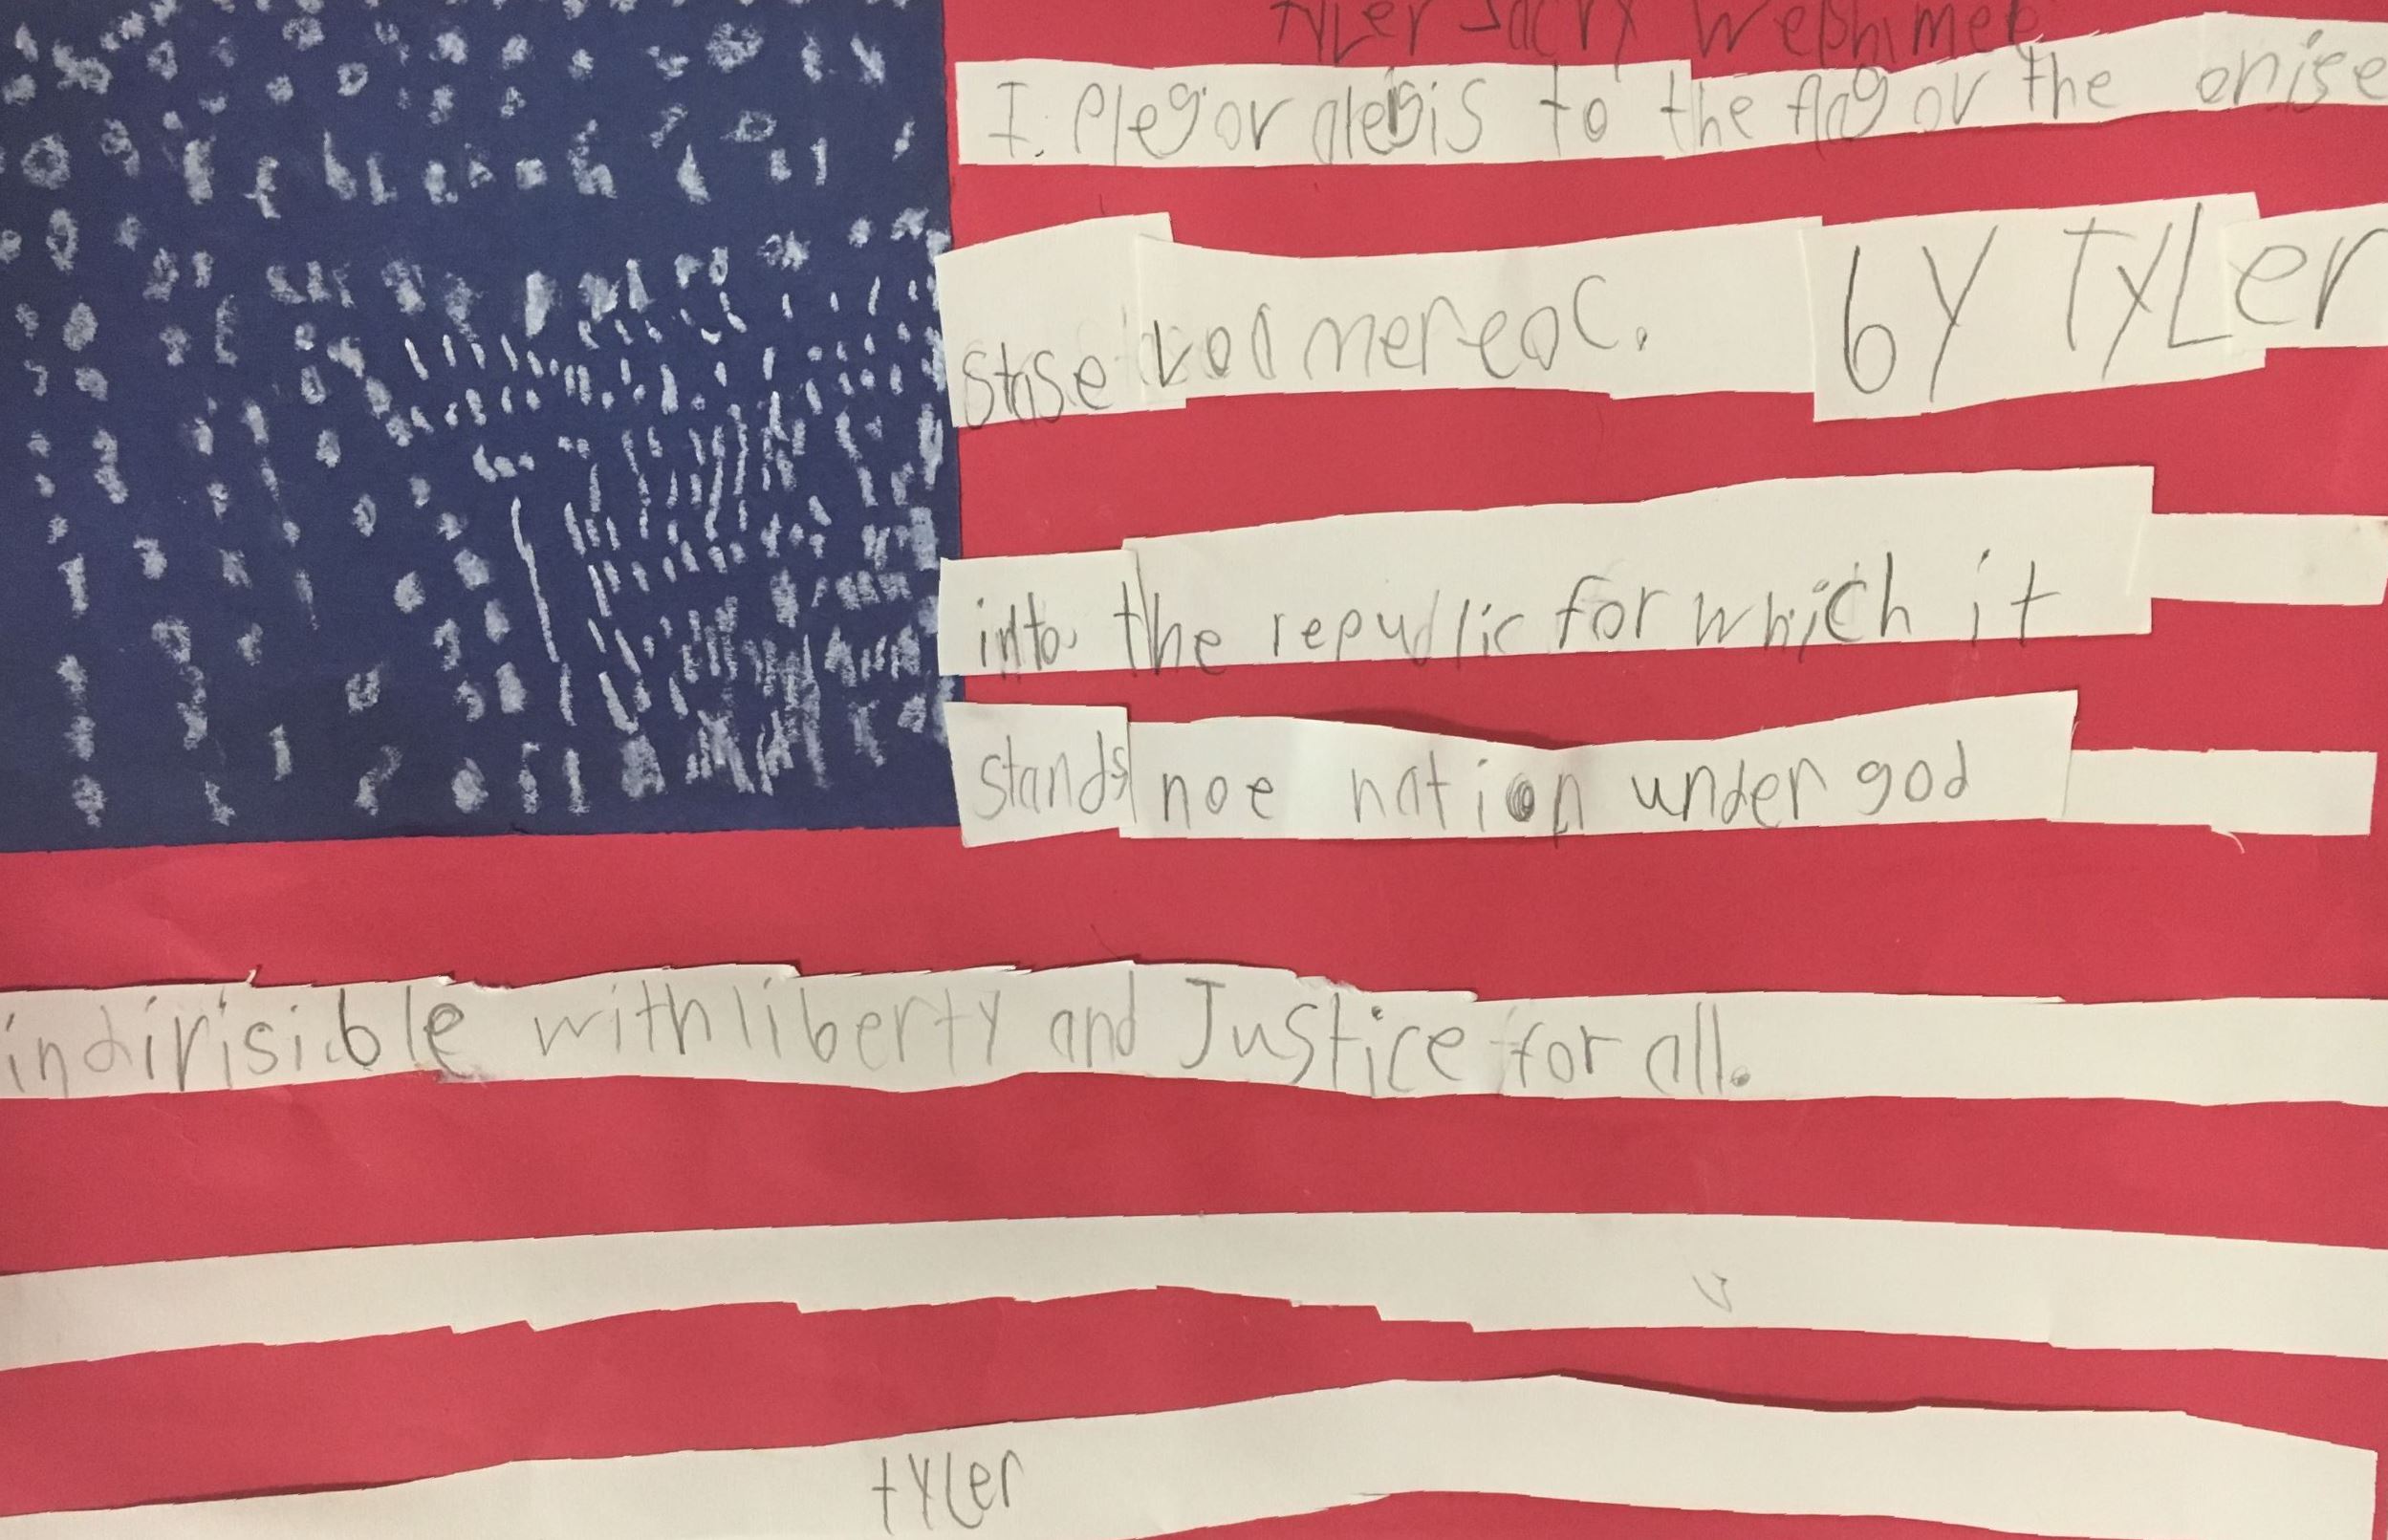 TyLer
I. Plegor alegis to the flag ov the enise
stase vod mereac. by TyLer
into the republic for which it
stands noe nation under god
indirisible with liberty and Justice for all.
tyLer